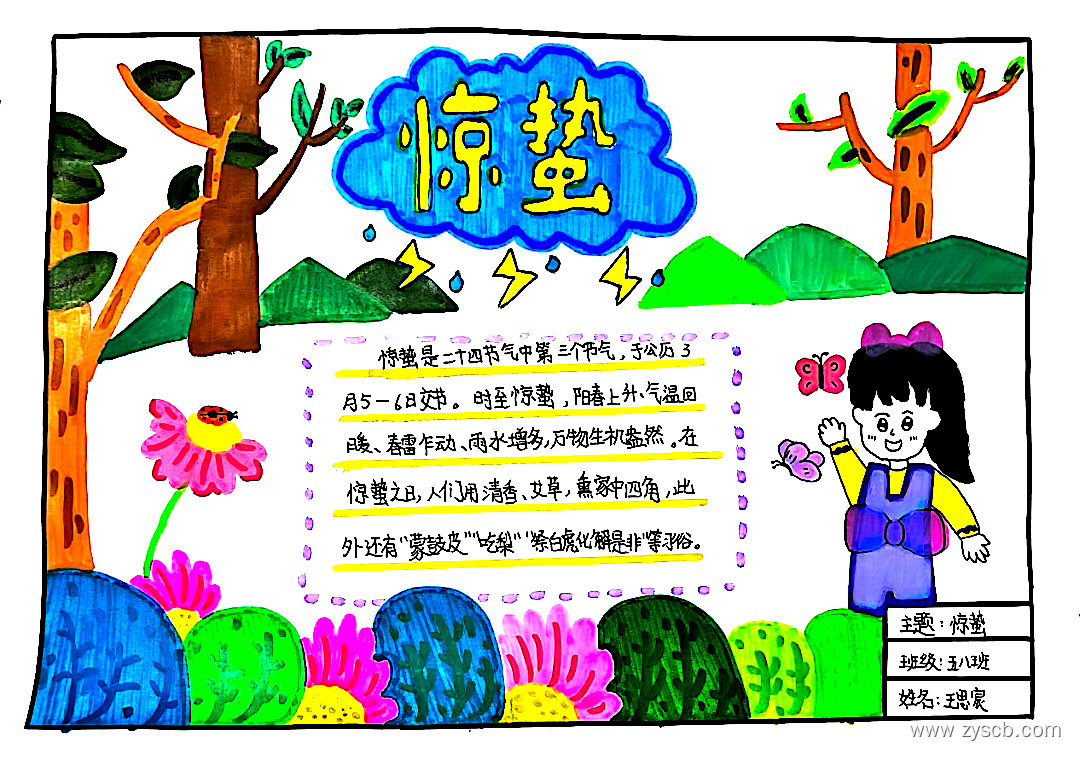 惊蛰
惊蛰是二十四节气中第三个节气，于公历3
月5—6日交节。时至惊蛰，阳春上升、气温回
暖、春雷乍动、雨水增多，万物生机盎然。在
惊蛰之日，人们用清香、艾草，熏家中四角，此
外还有“蒙鼓皮”“吃梨”“祭白虎化解是非”等习俗。
主题：惊蛰
班级：五八班
姓名：王思宸
www.zyscb.com